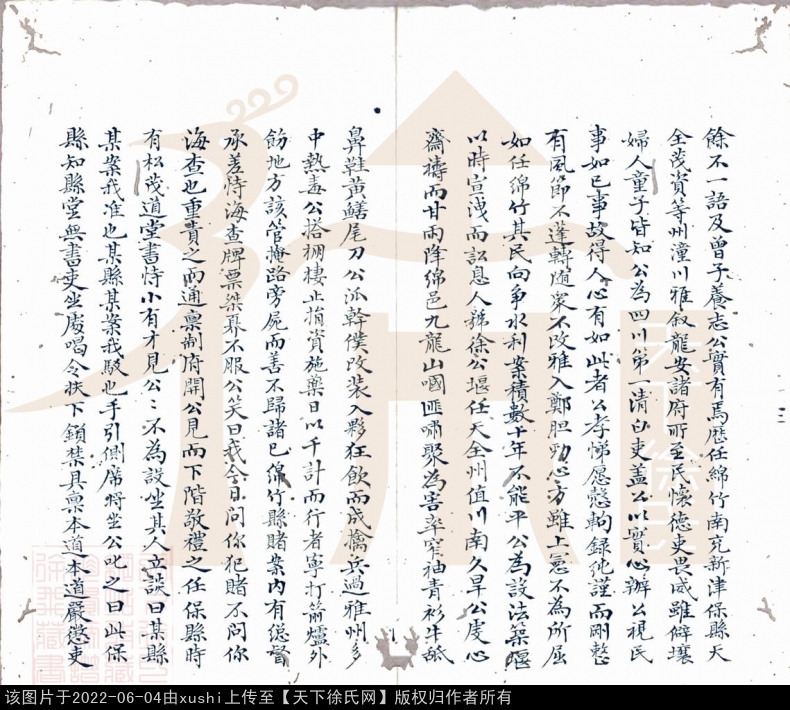 餘不一語及曾子養志公實有焉歷任綿竹南充新津保縣天
全茂資等州潼川雅敘龍安諸府所至民懷德吏畏威雖僻壤
婦人童子皆知公為四川第一清白吏蓋公以實心辦公視民
事如已事故得人心有如此者公孝悌愿慤軔録佗謹而剛整
有風節不逶轉隨衆不改雅入鄭胆勁心方雖上憲不為所屈
如任綿竹其民向爭水利案積數十年不能平公為設法築堰
以時宣洩而訟息人號徐公堰任天全州值川南久旱公虔心
齋禱而甘雨降綿邑九龍山嘓匪嘯聚為害率窄袖青衫牛舐
鼻鞋黄鱔尾刀公派幹僕改装入夥狂飲而成擒兵過雅州多
中熱毒公搭棚棲止捐資施藥日以千計而行者寧打箭爐外
飭地方該管掩路旁屍而善不歸諸已綿竹縣賭案内有總督
承差恃海查牌票桀驁不服公笑曰我今日問你犯賭不問你
海查也重責之而通禀制府開公見而下階敬禮之任保縣時
有松茂道堂書恃小有才見公〻不為設坐其人立談曰某縣
某案我准也某縣某案我駁也手引側席將坐公叱之曰此保
縣知縣堂無書吏坐處喝令扶下鎖禁具禀本道本道嚴懲吏
該图片于2022-06-04由xushi上传至【天下徐氏网】版权归作者所有